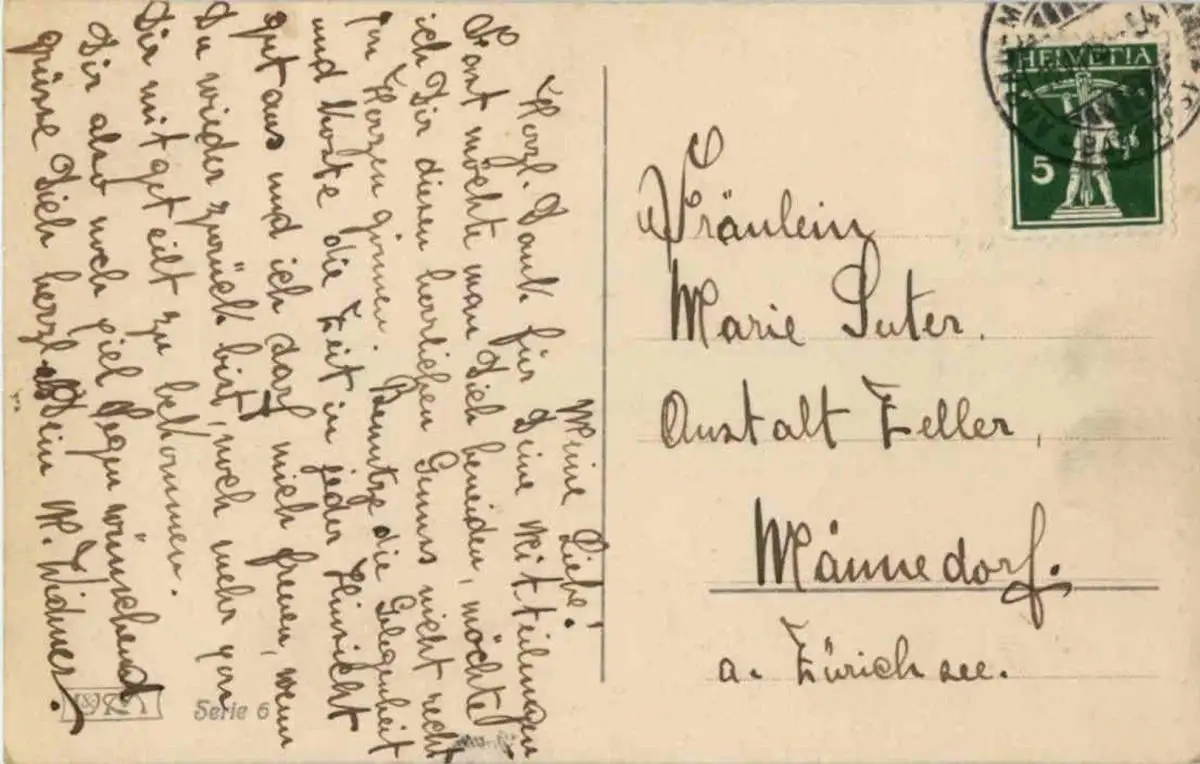 Meine Liebe!
Herzl. Dank für Deine Mitteilungen
Fast möchte man Dich beneiden, möchte
ich Dir diesen herrlichen Genuss nicht recht
von Herzen gönnen. Benutze die Gelegenheit
und koste die Zeit in jeder Hinsicht
gut aus und ich darf mich freuen, wenn
Du wieder zurück bist, noch mehr von
Dir mitgeteilt zu bekommen.
Dir also noch viel Segen wünschend
grüsse Dich herzl. Dein M. Widmer.
Fräulein
Marie Suter.
Anstalt Zeller,
Männedorf.
a. Zürichsee.
HELVETIA
5
Serie 6